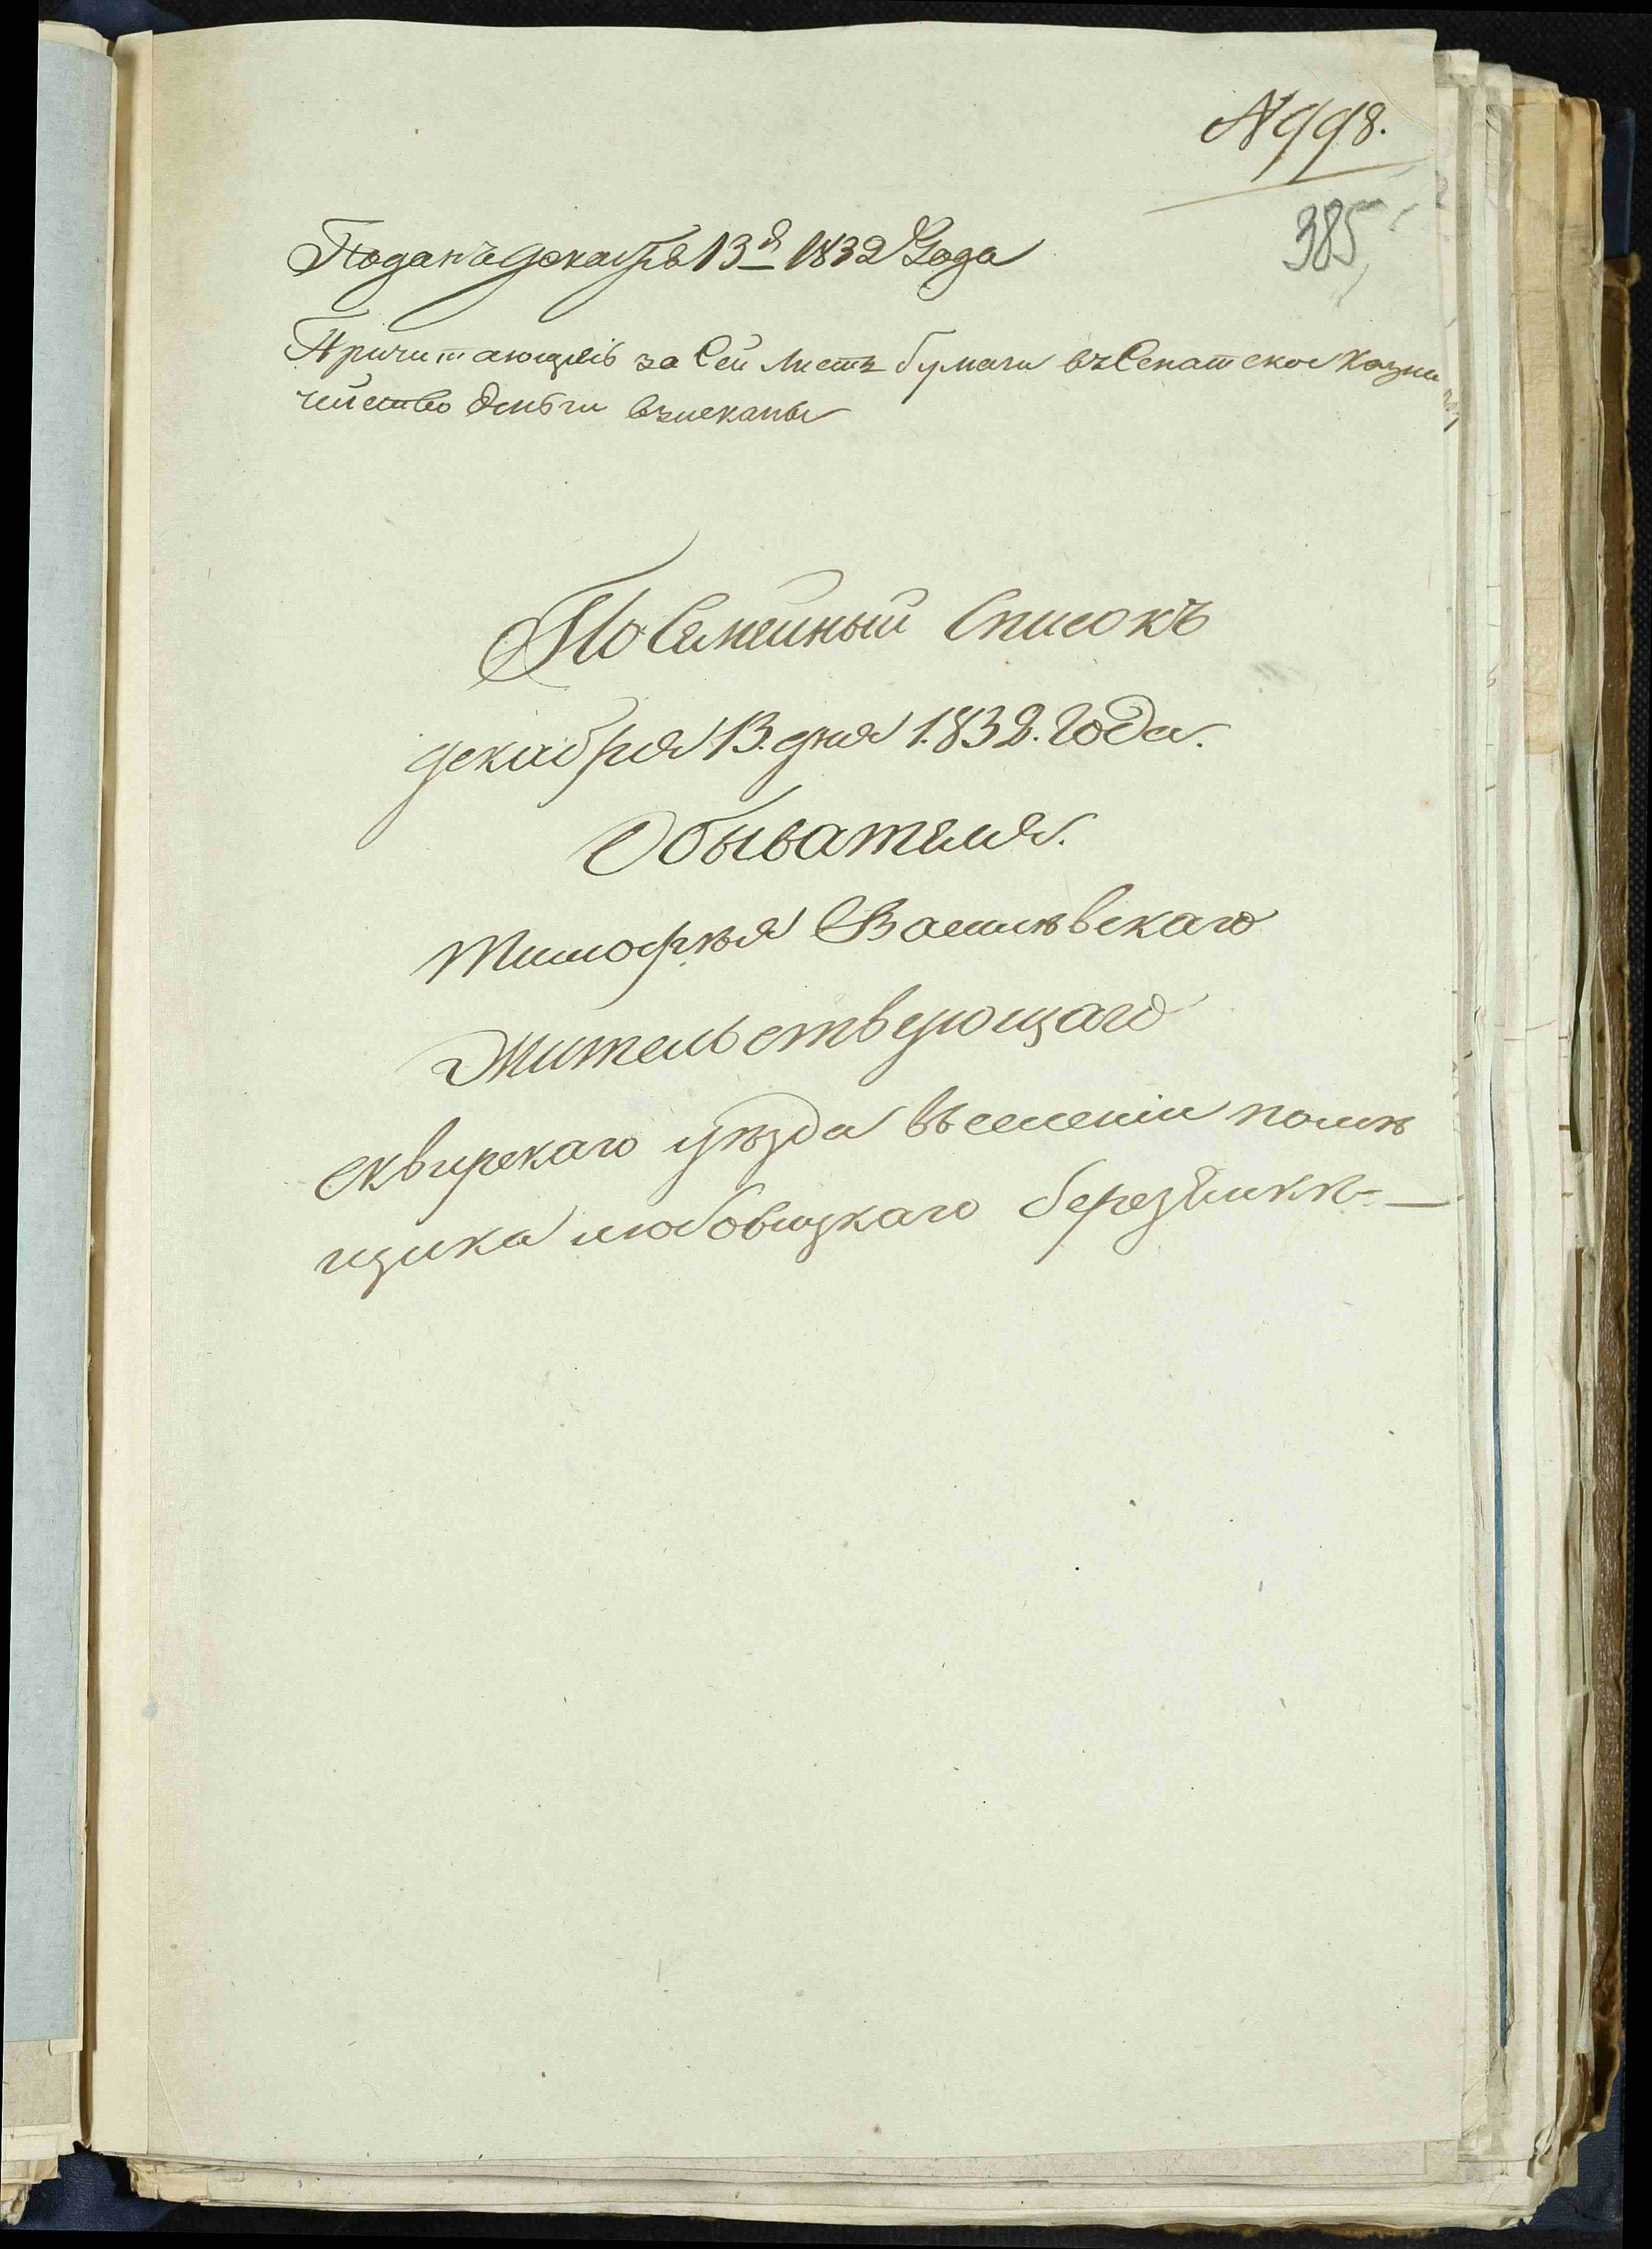 N 998.
385
Поданъ декабрѣ 13д 1832 Года
Причитающіесь за Сей Листъ бумаги въ Сенатское Казна
чейство деньги взысканы
По Семейный Списокъ
декабря 13. дня 1832. Года.
Обывателя.
Тимофѣя Васильвскаго
Жительствующаго
Сквирскаго уѣзда въ селеніи помѣ
щика любовицкаго